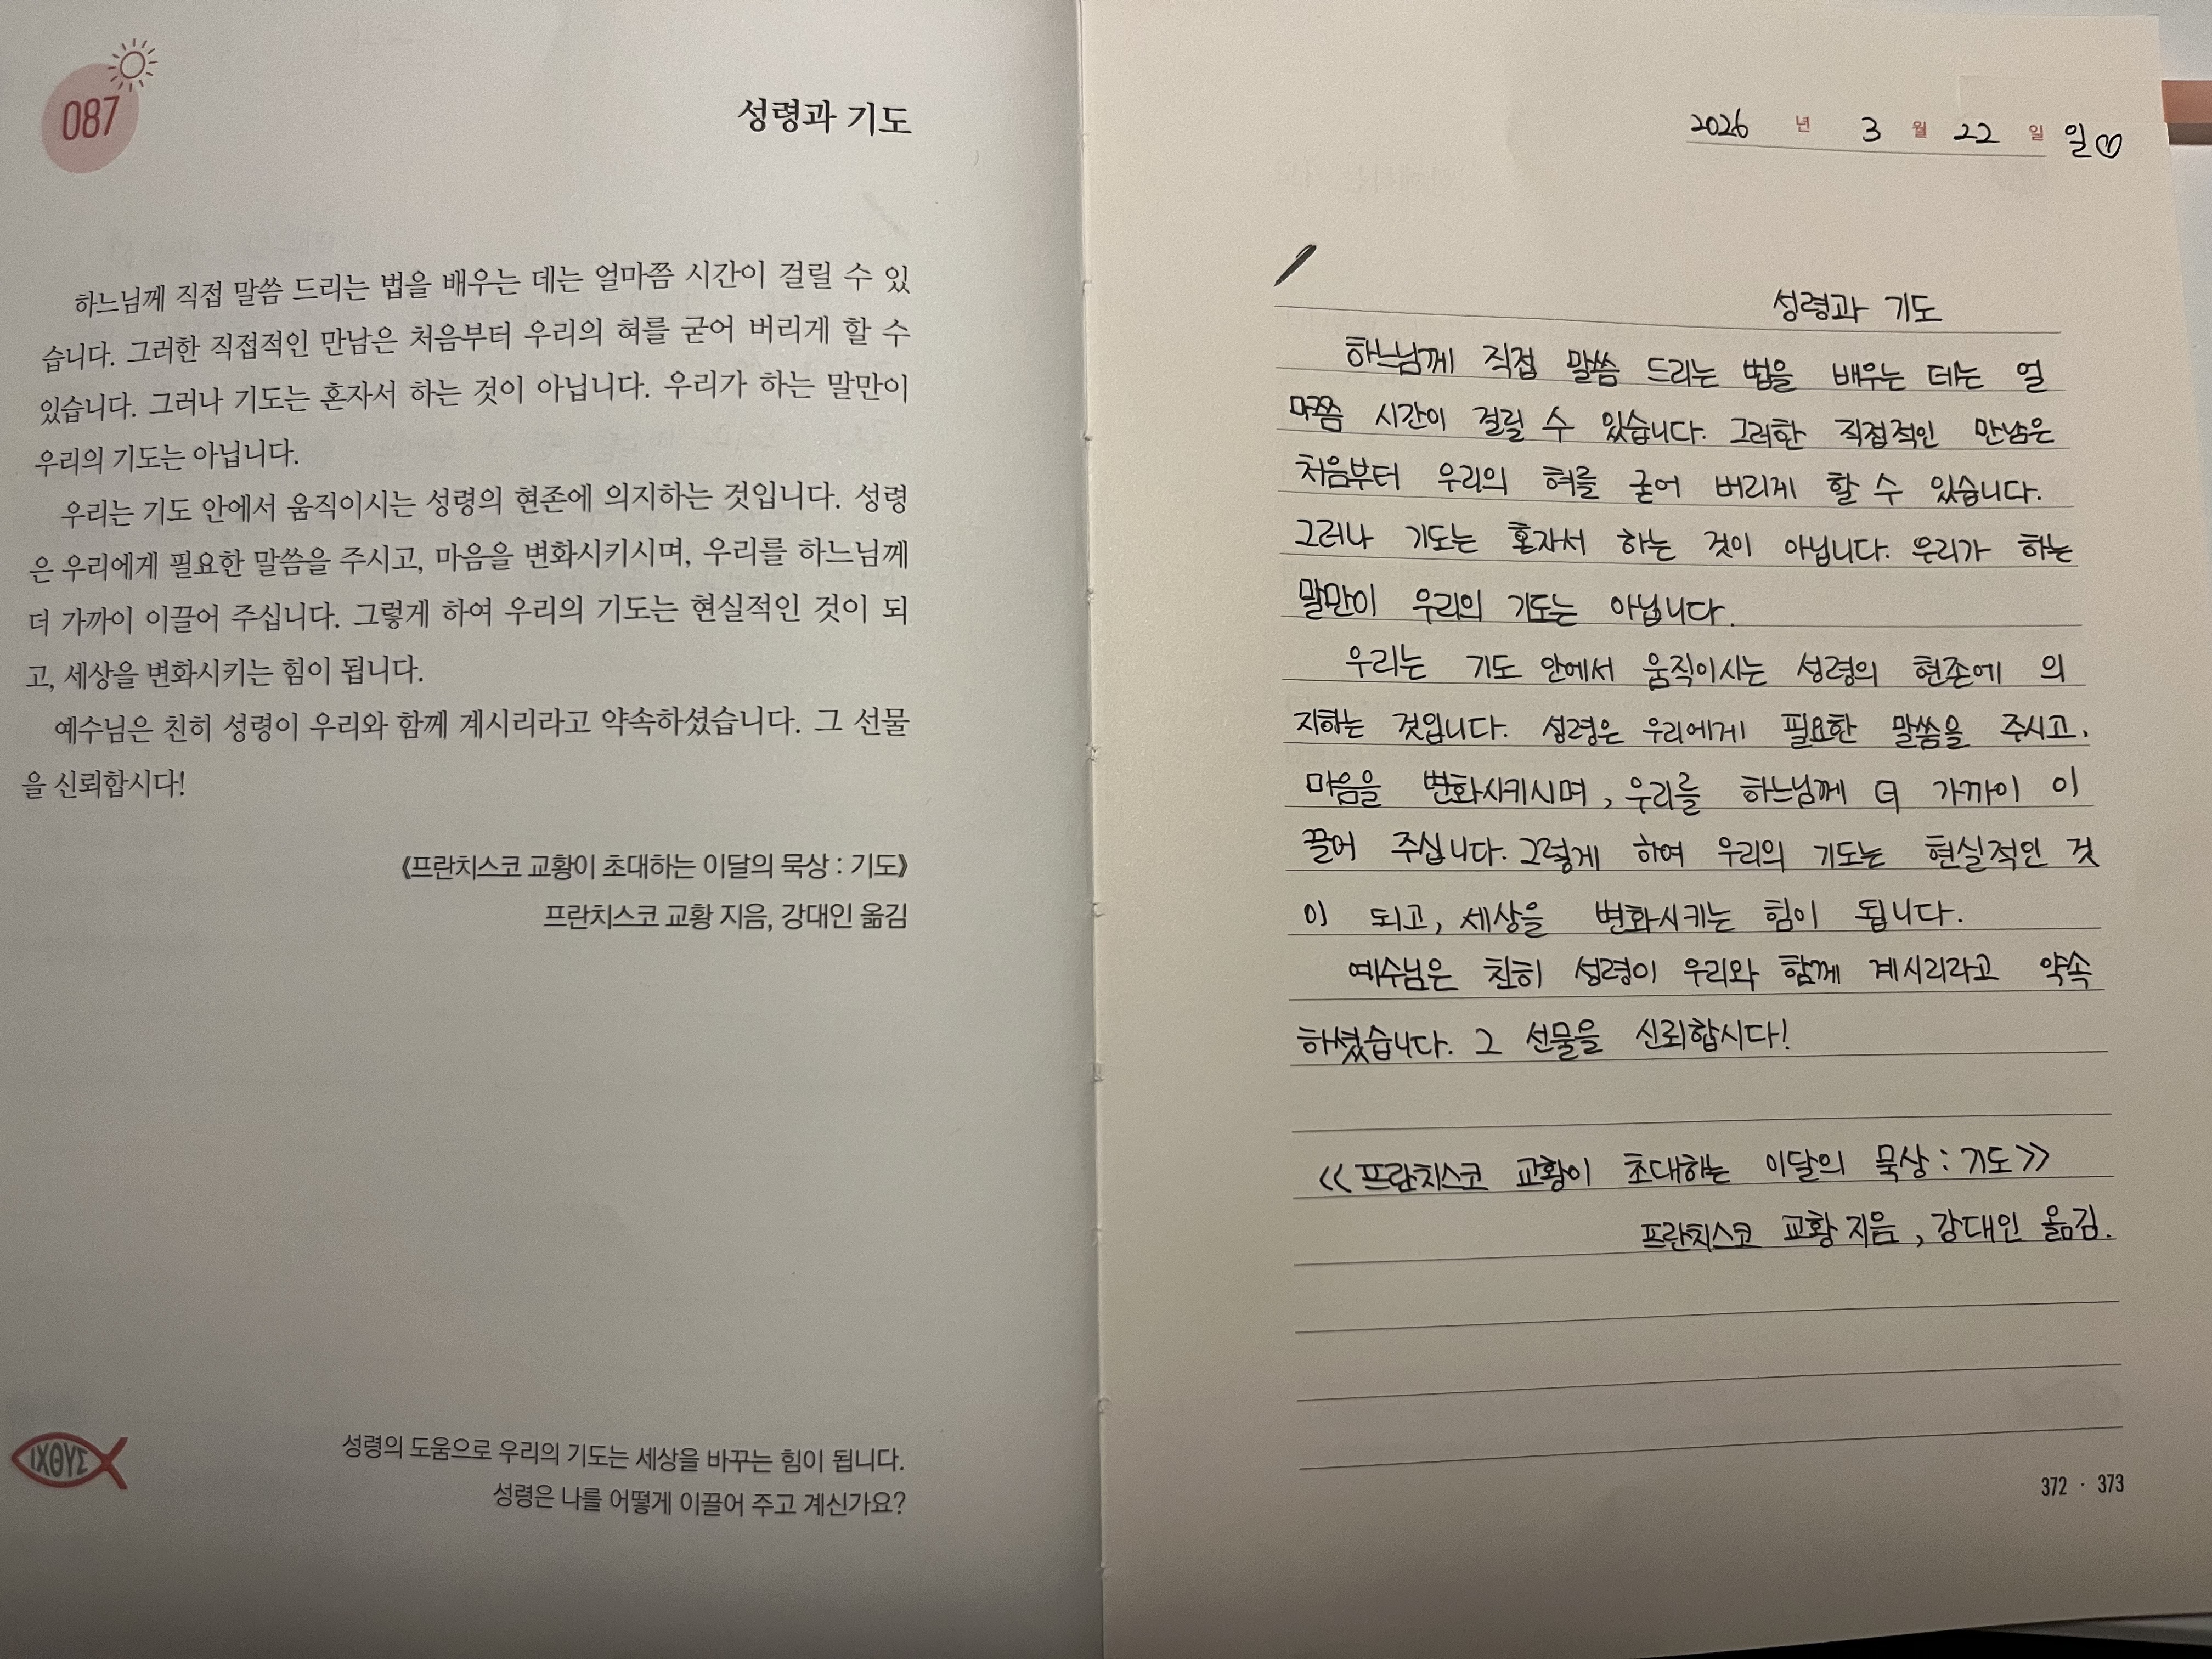 087
성령과 기도
하느님께 직접 말씀 드리는 법을 배우는 데는 얼마쯤 시간이 걸릴 수 있
습니다. 그러한 직접적인 만남은 처음부터 우리의 혀를 굳어 버리게 할 수
있습니다. 그러나 기도는 혼자서 하는 것이 아닙니다. 우리가 하는 말만이
우리의 기도는 아닙니다.
우리는 기도 안에서 움직이시는 성령의 현존에 의지하는 것입니다. 성령
은 우리에게 필요한 말씀을 주시고, 마음을 변화시키시며, 우리를 하느님께
더 가까이 이끌어 주십니다. 그렇게 하여 우리의 기도는 현실적인 것이 되
고, 세상을 변화시키는 힘이 됩니다.
예수님은 친히 성령이 우리와 함께 계시리라고 약속하셨습니다. 그 선물
을 신뢰합시다!
《프란치스코 교황이 초대하는 이달의 묵상 : 기도》
프란치스코 교황 지음, 강대인 옮김
ΙΧΘΥΣ
성령의 도움으로 우리의 기도는 세상을 바꾸는 힘이 됩니다.
성령은 나를 어떻게 이끌어 주고 계신가요?
2026 년 3 월 22 일 일♡
성령과 기도
하느님께 직접 말씀 드리는 법을 배우는 데는 얼
마쯤 시간이 걸릴 수 있습니다. 그러한 직접적인 만남은
처음부터 우리의 혀를 굳어 버리게 할 수 있습니다.
그러나 기도는 혼자서 하는 것이 아닙니다. 우리가 하는
말만이 우리의 기도는 아닙니다.
우리는 기도 안에서 움직이시는 성령의 현존에 의
지하는 것입니다. 성령은 우리에게 필요한 말씀을 주시고,
마음을 변화시키시며, 우리를 하느님께 더 가까이 이
끌어 주십니다. 그렇게 하여 우리의 기도는 현실적인 것
이 되고, 세상을 변화시키는 힘이 됩니다.
예수님은 친히 성령이 우리와 함께 계시리라고 약속
하셨습니다. 그 선물을 신뢰합시다!
<<프란치스코 교황이 초대하는 이달의 묵상 : 기도>>
프란치스코 교황 지음, 강대인 옮김.
372 · 373